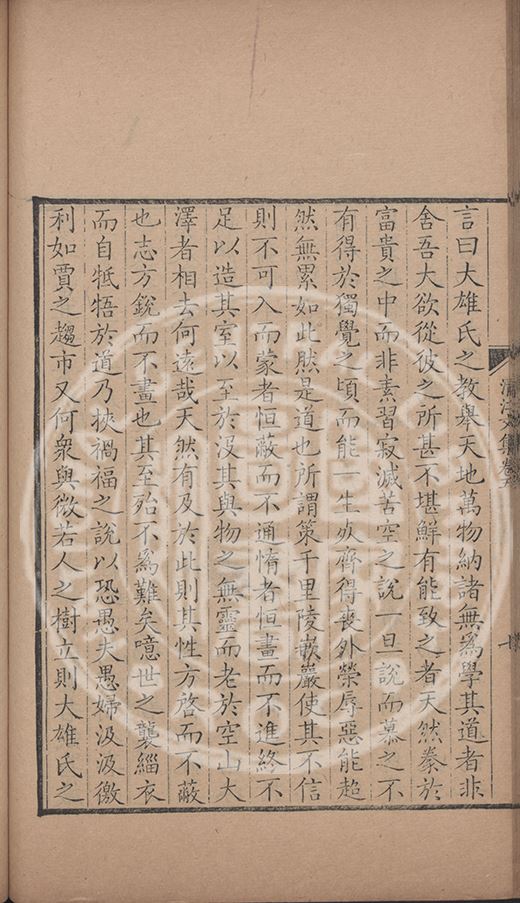 言曰大雄氏之教舉天地萬物納諸無爲學其道者非
舍吾大欲從彼之所甚不堪鮮有能致之者天然豢於
富貴之中而非素習寂滅苦空之說一旦說而慕之不
有得於獨覺之頃而能一生死齊得喪外榮辱惡能超
然無累如此然是道也所謂策千里陵嵌巖使其不信
則不可入而蒙者恒蔽而不通惰者恒畫而不進終不
足以造其室以至於沒其與物之無靈而老於空山大
澤者相去何遠哉天然有及於此則其性方啓而不蔽
也志方銳而不畫也其至殆不爲難矣噫世之襲緇衣
而自牴牾於道乃挾禍福之說以恐愚夫愚婦汲汲徼
利如賈之趨市又何衆與微若人之樹立則大雄氏之
文集卷